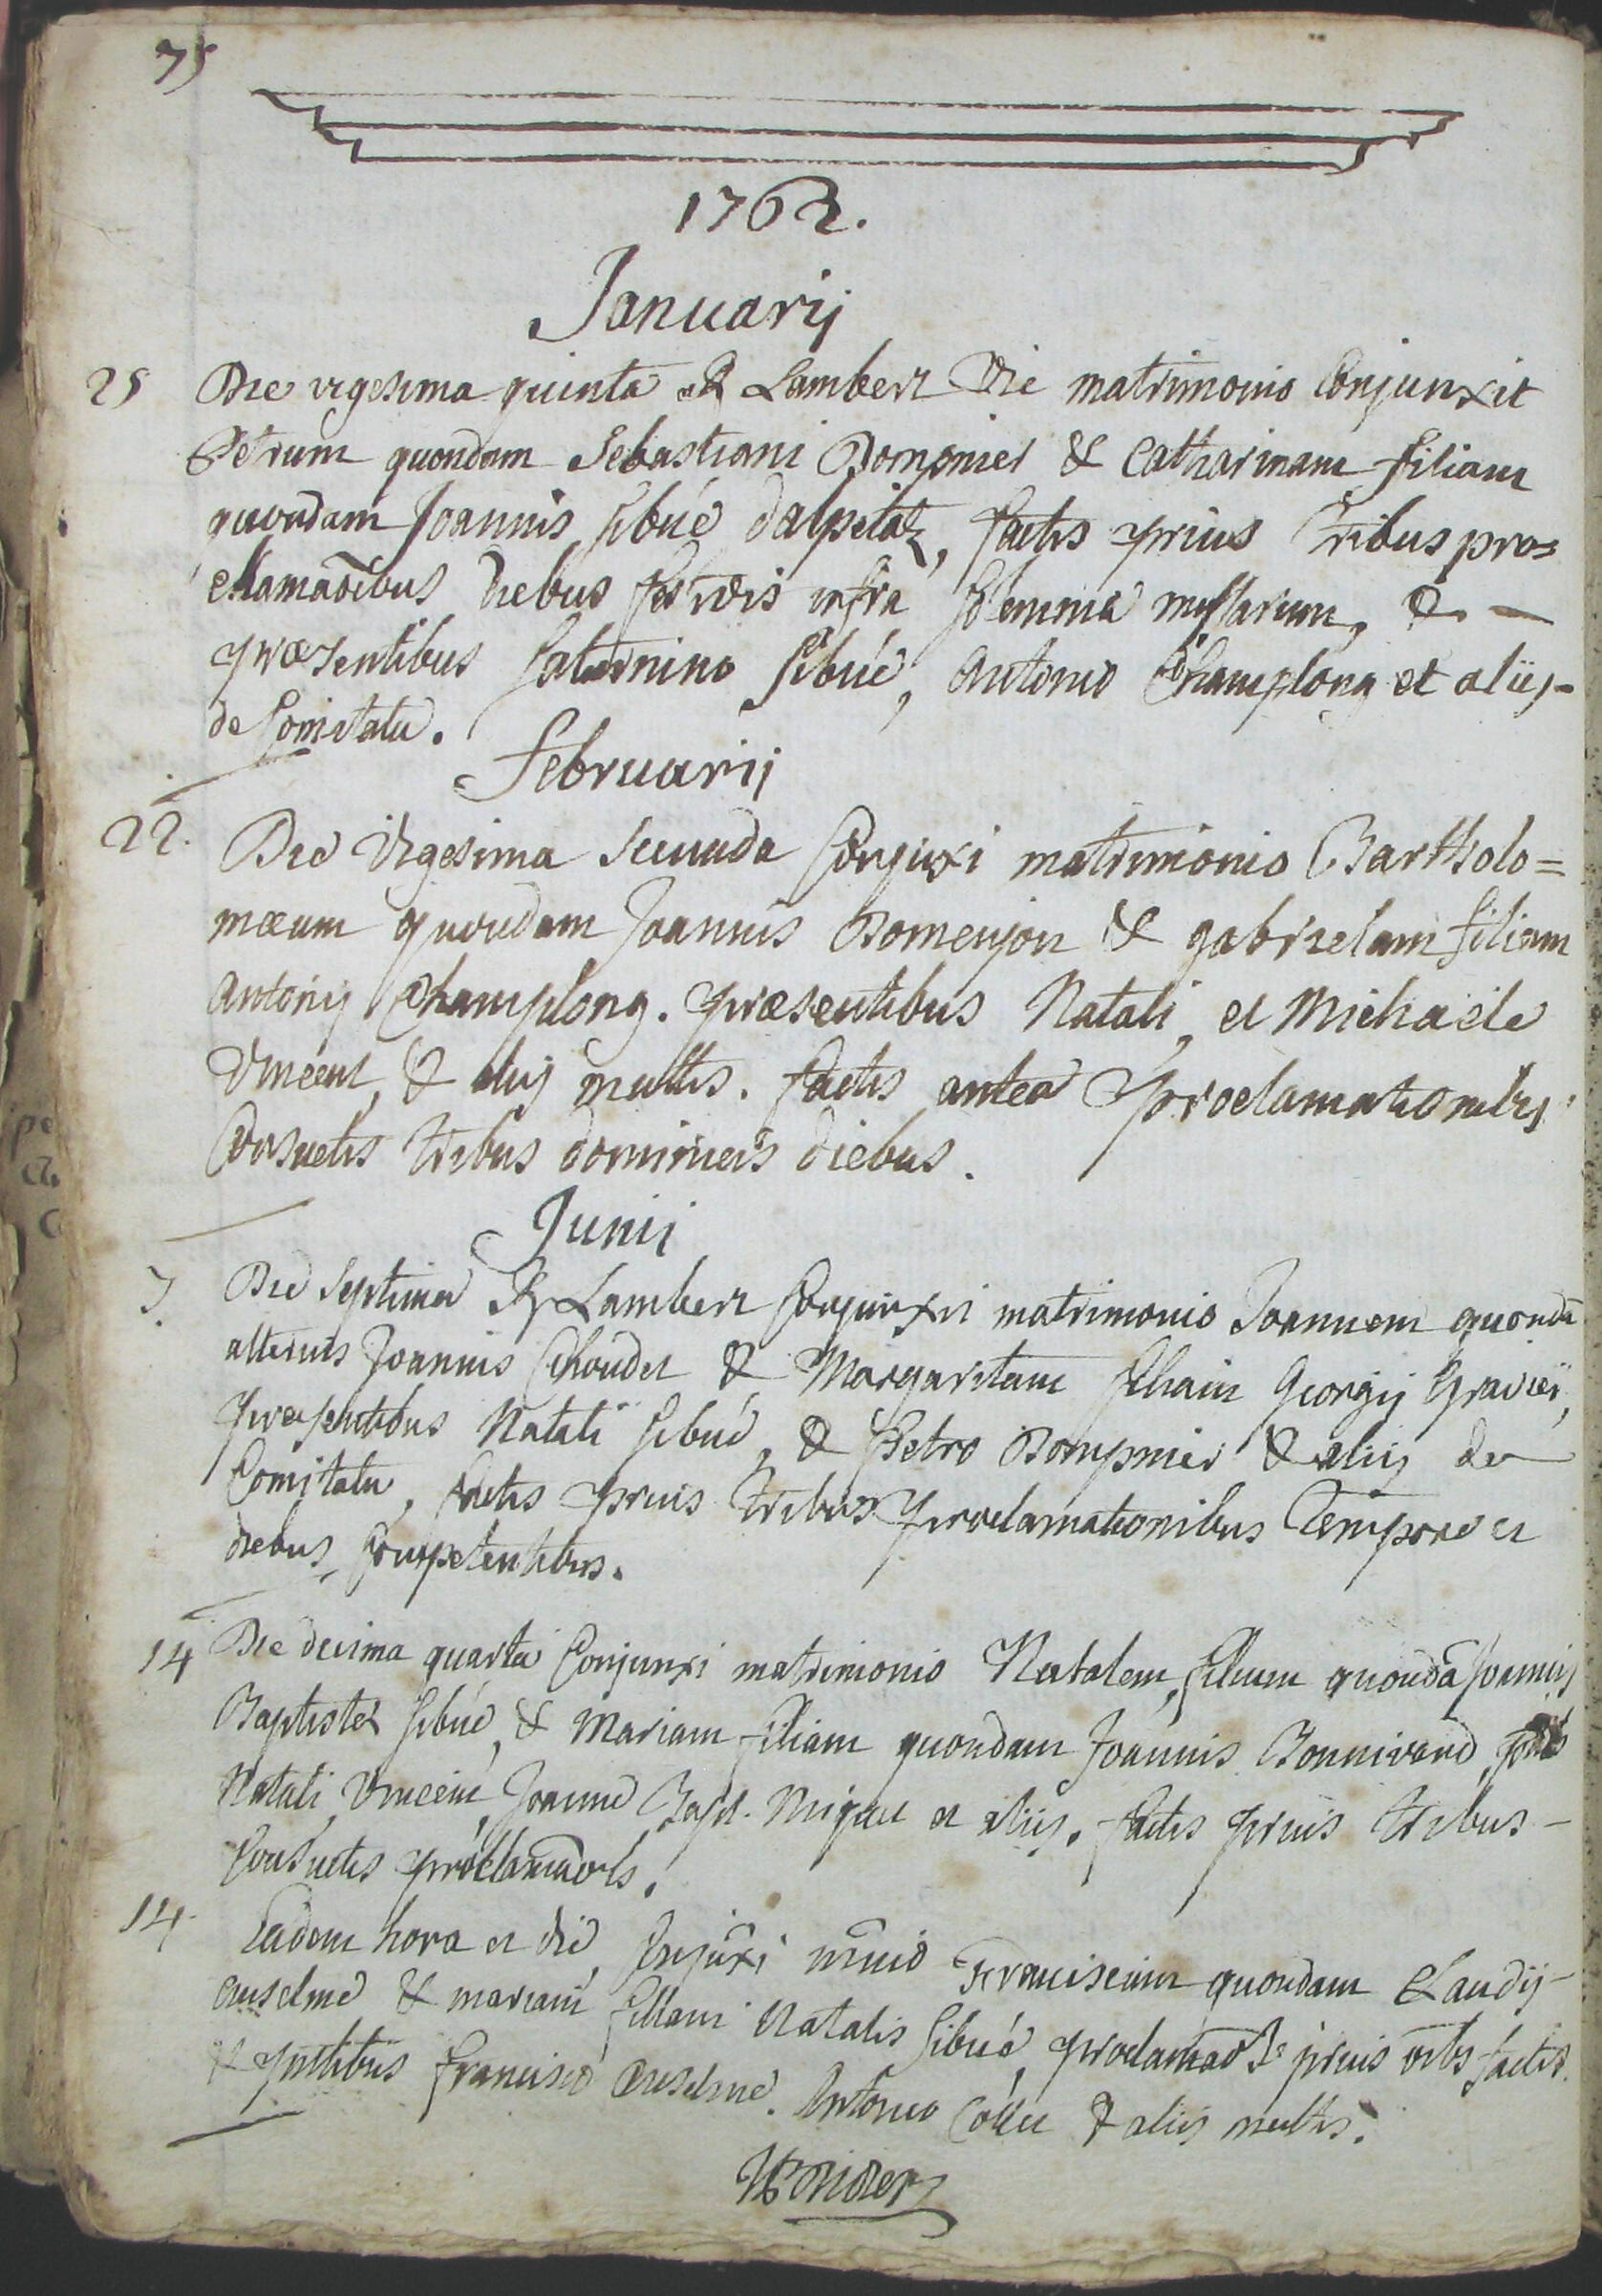 75
1762.
Januarij
25 Die vigesima quinta R Lambert Vic matrimonio Conjunxit
Petrum quondam Sebastiani Bomonier & Catharinam filiam
quondam Joannis sibué dalpetaz, factis prius tribus pro=
clamaõibus diebus festivis infra solemnia missarum, & —
præsentibus saturnino sibué, antonio Champlong et aliis-
de Comitatu.
februarij
22. Die Vigesima secunda Conjuxi matrimonio Bartholo=
mæum quondam Joannis Bomenjon & gabrielam filiam
antonij Champlong. præsentibus Natali, et Michaele
Vincent, & alijs multis. factis antea proclamationibus
Consuetis tribus dominicis diebus.
Junij
7. Die Septima R Lambert Conjunxit matrimonio Joannem quondã
alterius Joannis Choudet & Margaritam filiam Georgij Gravier,
præsentibus Natali sibué, & Petro Bompnier & alijs de
Comitatu, factis prius tribus proclamationibus Tempore et
diebus Competentibus.
14 Die decima quarta Conjunxi matrimonio Natalem, filium quondã Joannis
Baptistæ sibué, & Mariam filiam quondam Joannis Bonnivard,
Natali Vincent, Joanne Bapt. et aliis. factis prius tribus-
Consuetis proclamaõbs.
14. Eadem hora et die, Conjũxi mõnio Franciscum quondam Claudij-
anselme & mariam filiam Natalis sibué, prius factis.
& pñtibus francisco anselme. Antonio & aliis multis.